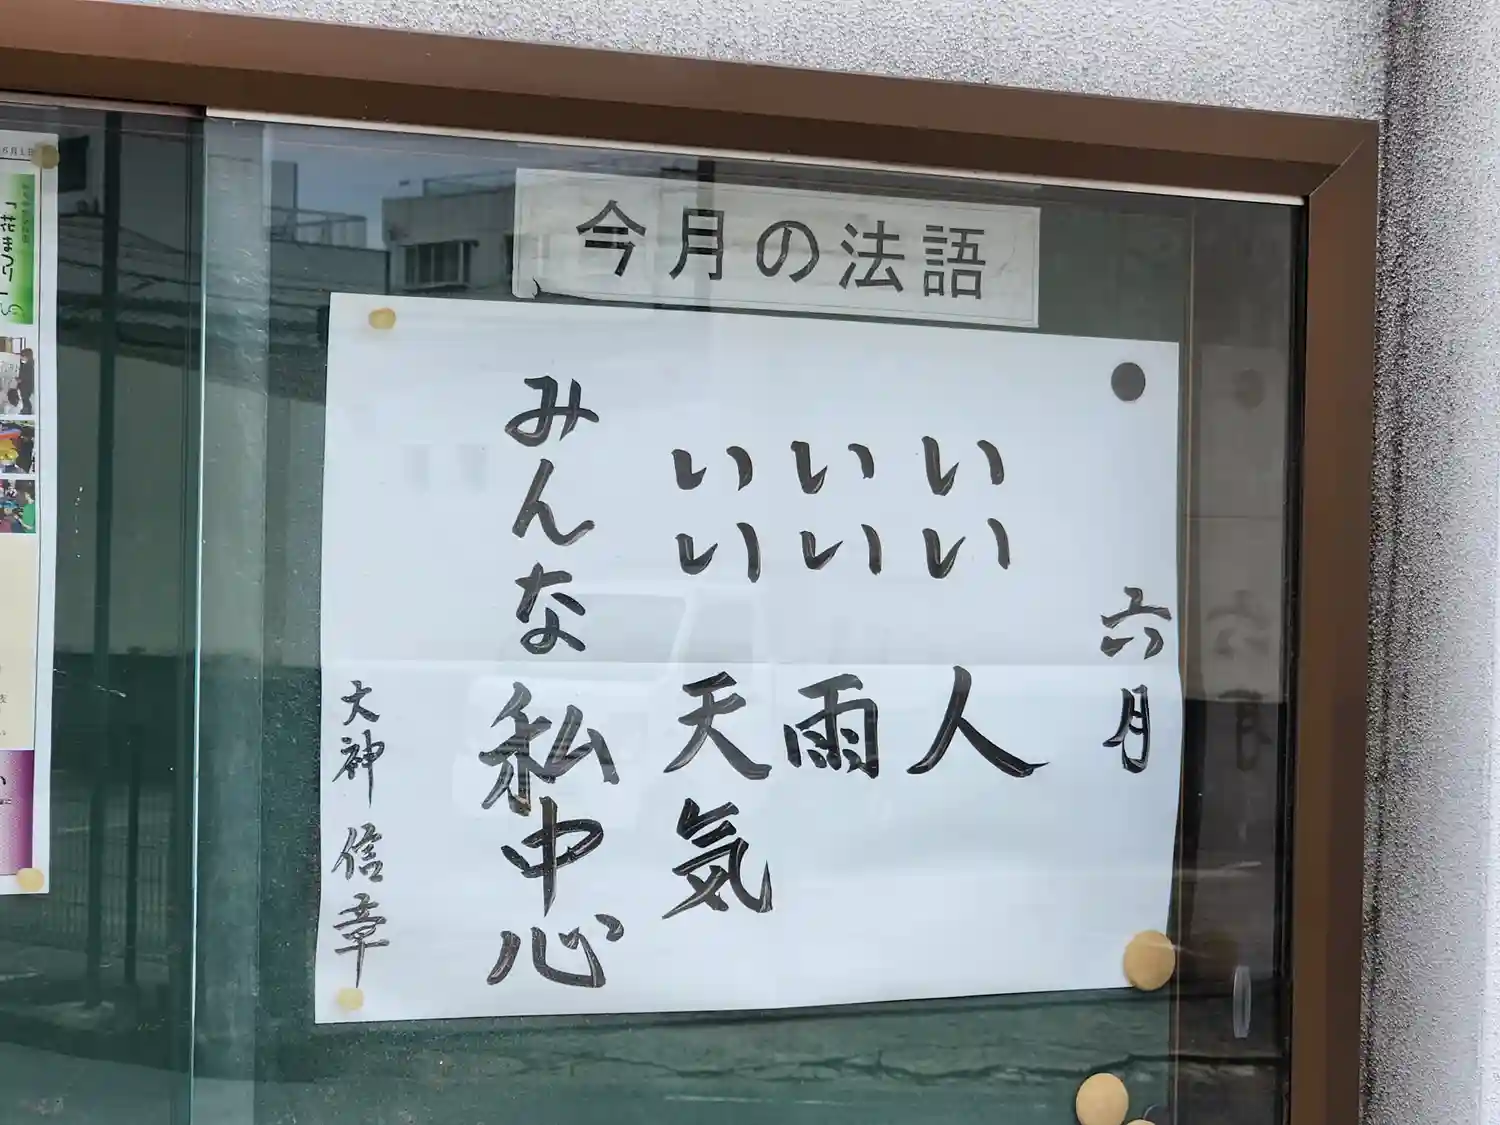 今月の法語
六月
いい人
いい雨
いい天気
みんな私中心
大神信章
「花まつり」の